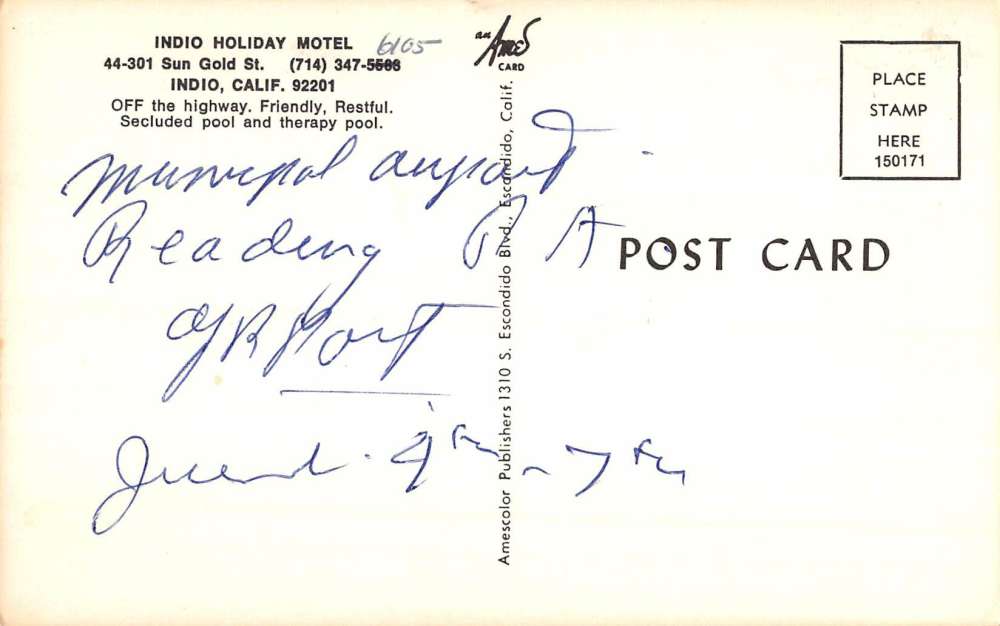 INDIO HOLIDAY MOTEL
6105
44-301 Sun Gold St. (714) 347-5588
INDIO, CALIF. 92201
OFF the highway. Friendly, Restful.
Secluded pool and therapy pool.
an Ames
CARD
PLACE
STAMP
HERE
150171
POST CARD
Amescolor Publishers 1310 S. Escondido Blvd., Escondido, Calif.
Municipal airport
Reading P A